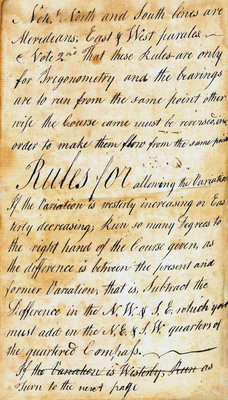 Note 1st North and South lines are
Meredians, East & West paralels
& Note 2nd That these Rules are only
for Trigonometry and the bearings
are to run from the same point other
wise the Course came must be reversed, in
order to make them flow from the same point
Rules for allowing the Variation
If the Variation is westerly increasing or Eas
terly decreasing; Run so many Degrees to
the right hand of the Course given, as
the difference is between the present and
former Variation, that is, Subtract the
Difference in the N.W. & S.E. which you
must add in the N.E. & S.W. quarters of
the quartered Compass.
If the Variation is Westerly, Run as
Turn to the next page